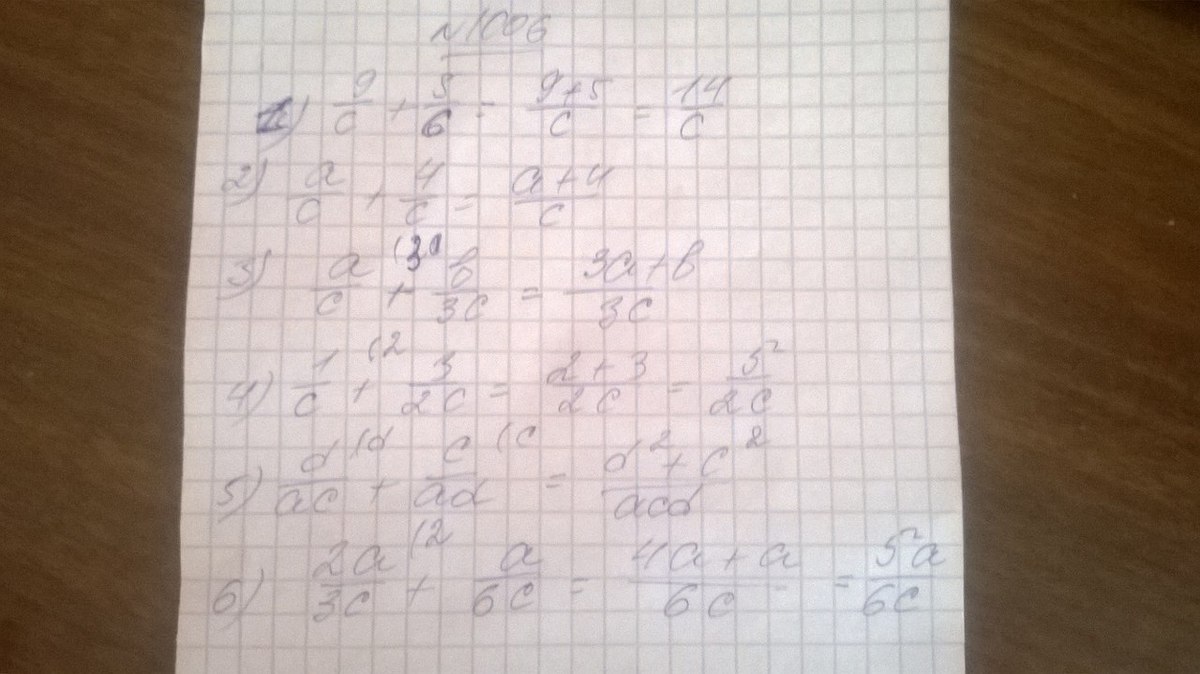 №1006
1) 9/c + 5/6 = 9+5/c = 14/c
2) a/c + 4/c = a+4/c
3) a/c (3 + b/3c = 3a+b/3c
4) 1/c (2 + 3/2c = 2+3/2c = 5/2c
5) d/ac (d + c/ad (c = d²+c²/acd
6) 2a/3c (2 + a/6c = 4a+a/6c = 5a/6c